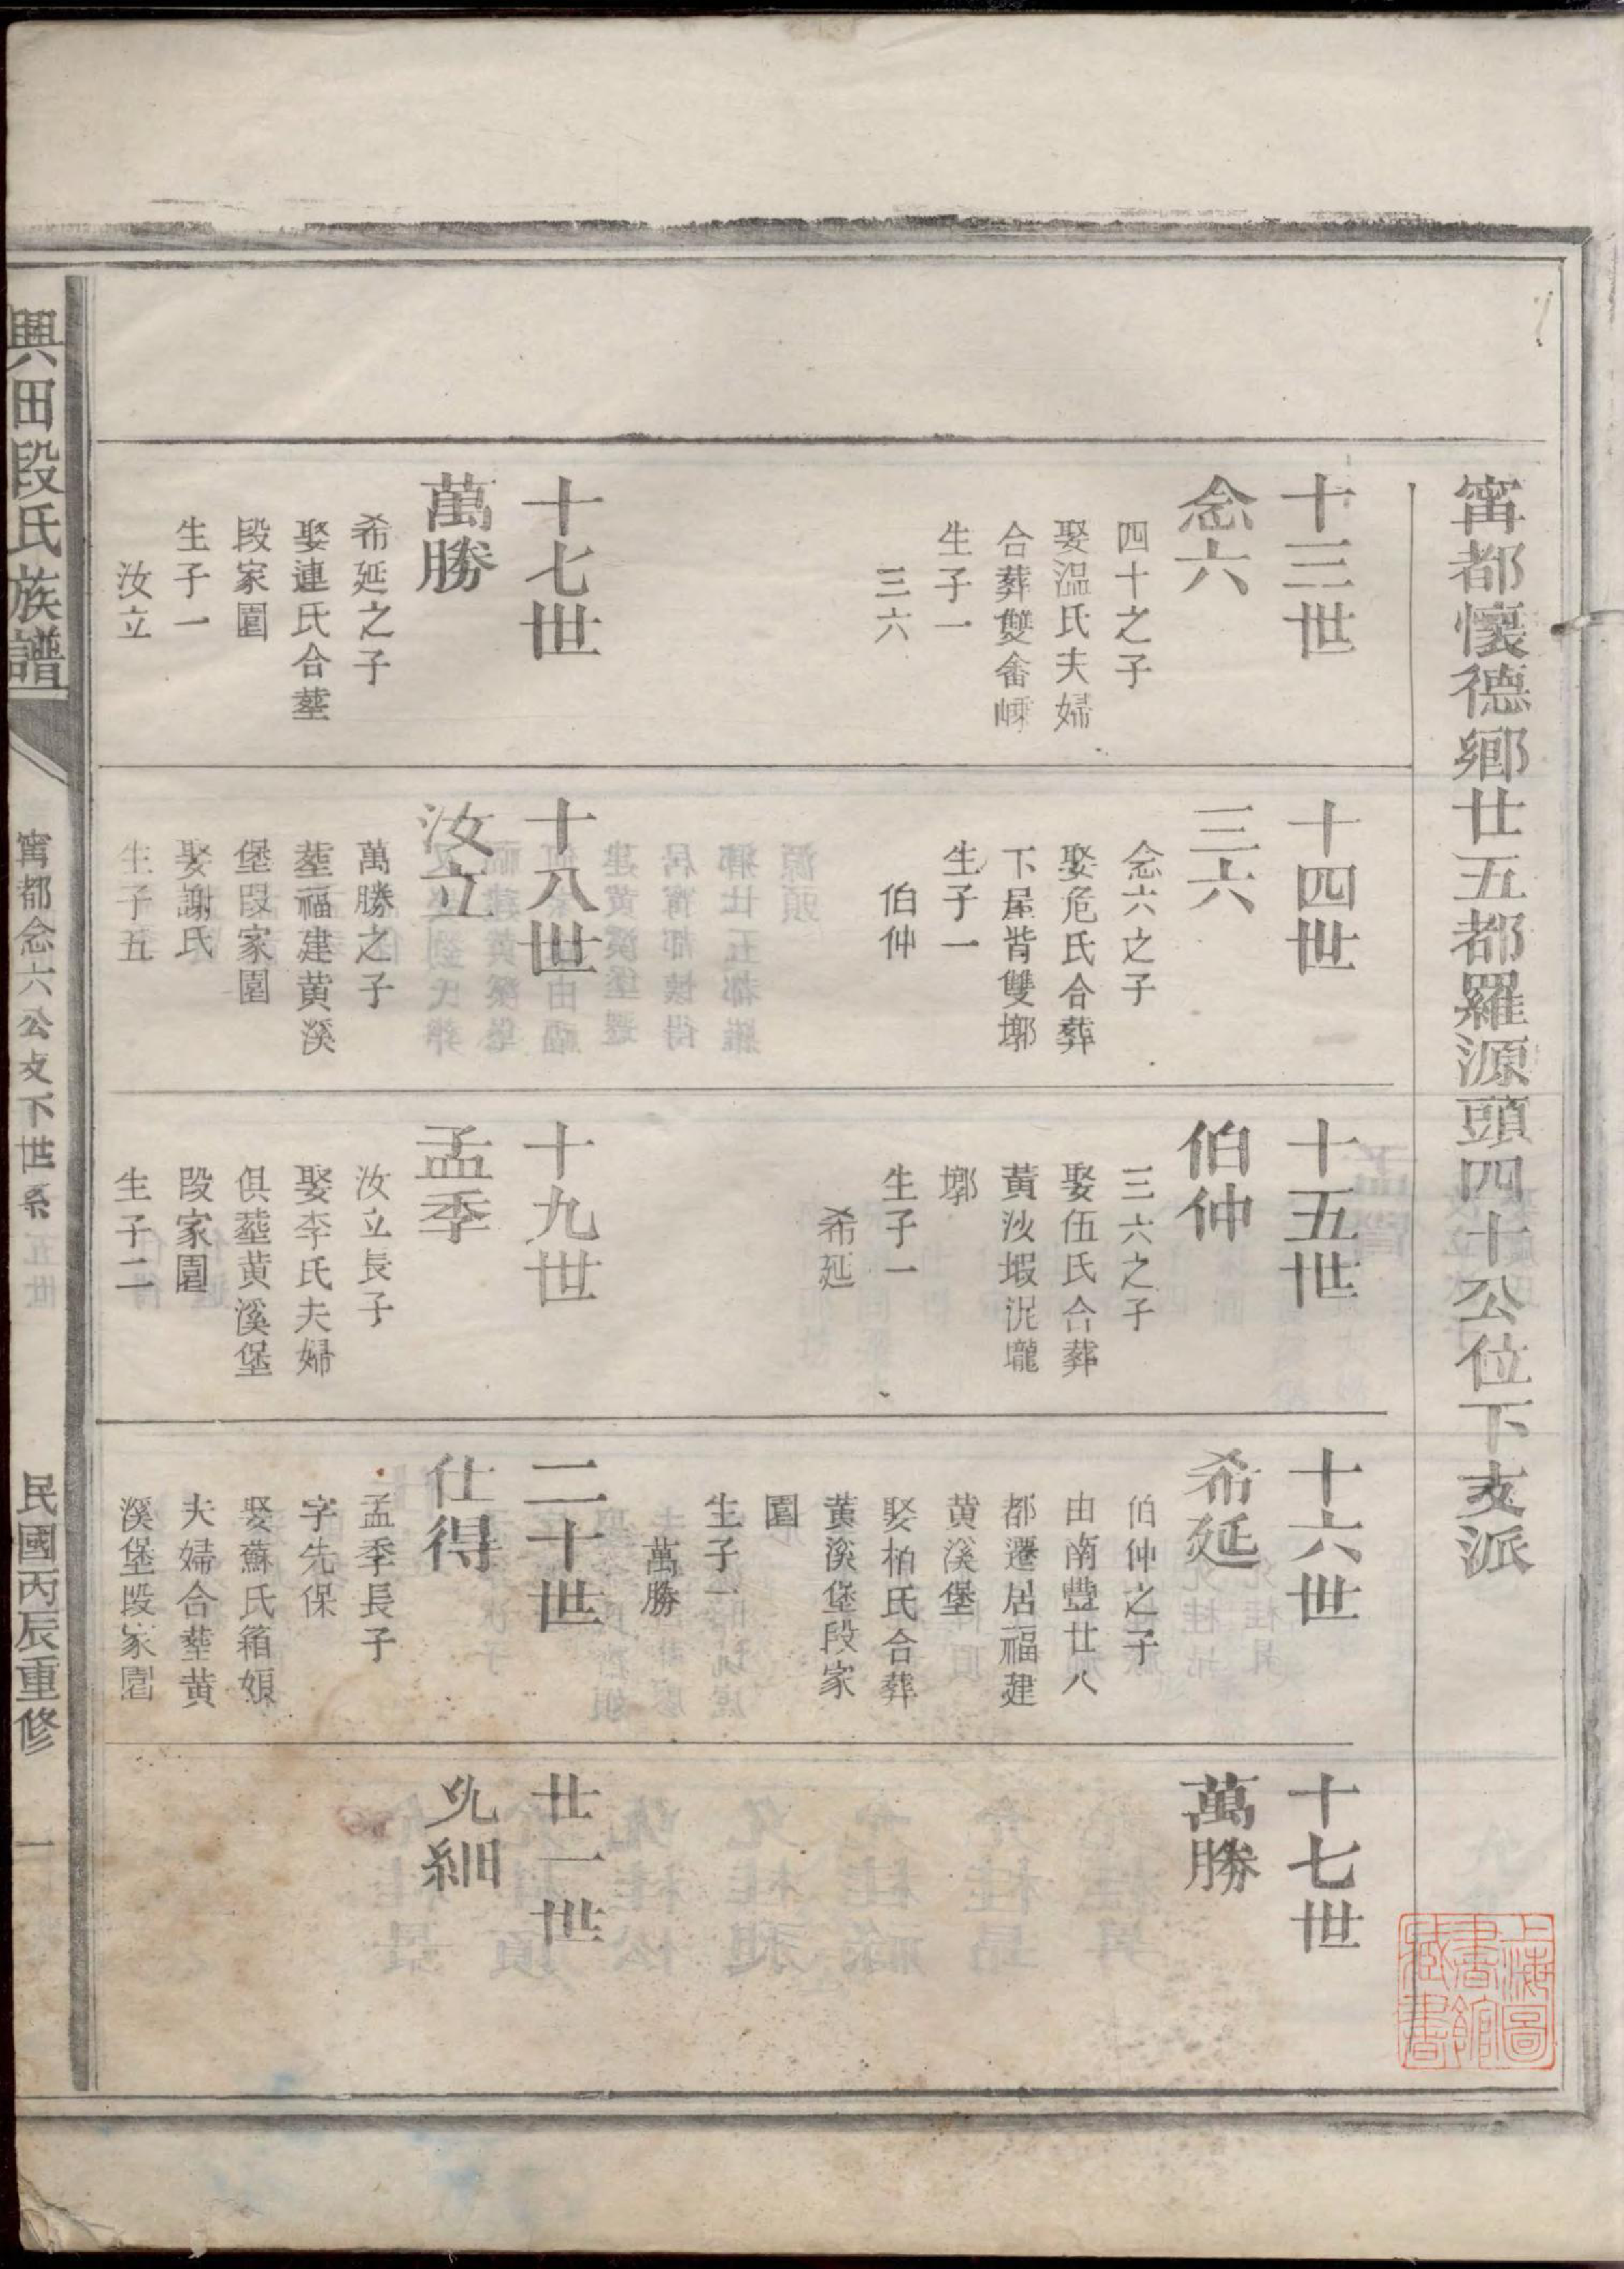 甯都懷德鄉廿五都羅源頭四十公位下支派
十三世
念六
四十之子
娶温氏夫婦
合葬雙畬嵊
生子一
三六
十四世
三六
念六之子
娶危氏合葬
下屋背雙墎
生子一
伯仲
十五世
伯仲
三六之子
娶伍氏合葬
黃沙塅泥壠
墎
生子一
希延
十六世
希延
伯仲之子
由南豐廿八
都遷居福建
黄溪堡
娶柏氏合葬
黄溪堡段家
園
生子一
萬勝
十七世
萬勝
十七世
萬勝
希延之子
娶連氏合塟
段家園
生子一
汝立
十八世
汝立
萬勝之子
塟福建黄溪
堡段家園
娶謝氏
生子五
十九世
孟季
汝立長子
娶李氏夫婦
俱塟黄溪堡
段家園
生子二
二十世
仕得
孟季長子
字先保
娶蘇氏箱娘
夫婦合塟黄
溪堡段家園
廿一世
允細
興田段氏族譜
甯都念六公支下世系 五世
民國丙辰重修
一
上海圖書館藏書